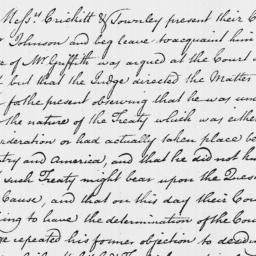 Mess.rs Crickitt & Townley present their C
Johnson and beg leave to acquaint him
e of Mr Griffith was argued at the Court
t but that the Judge directed the Matter
for the present observing that he was un
the nature of the Treaty which was either
deration or had actually taken place be
try and America, and that he did not k
such Treaty might bear upon the Ques
Cause, and that on this day their Cou
ing to have the determination of the Cou
ge repeated his former objection to decid